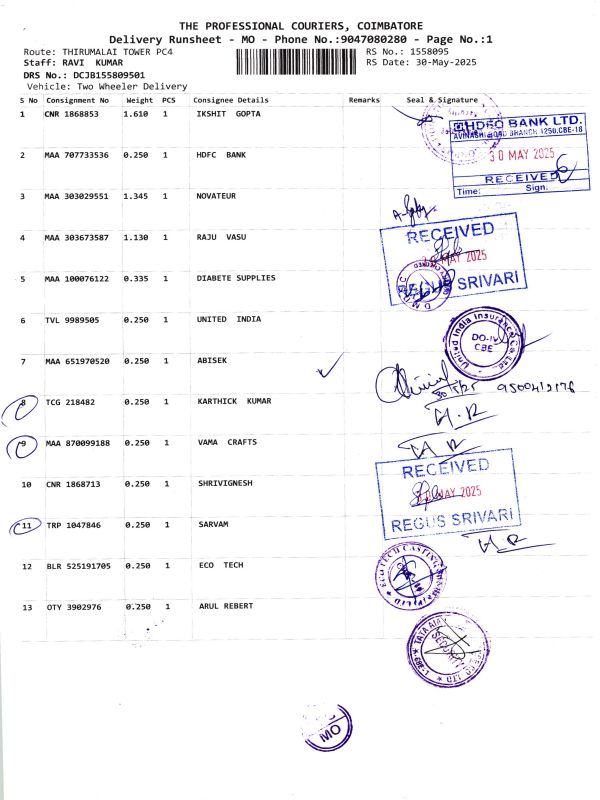 THE PROFESSIONAL COURIERS, COIMBATORE
Delivery Runsheet - MO - Phone No.:9047080280 - Page No.:1
Route: THIRUMALAI TOWER PC4 RS No.: 1558095
Staff: RAVI KUMAR RS Date: 30-May-2025
DRS No.: DCJB155809501
Vehicle: Two Wheeler Delivery
S No Consignment No Weight PCS Consignee Details Remarks Seal & Signature
1 CNR 1868853 1.610 1 IKSHIT GOPTA
HDFC BANK LTD.
AVINASHI ROAD BRANCH 1250.CBE-18
30 MAY 2025
RECEIVED
Time: Sign:
2 MAA 707733536 0.250 1 HDFC BANK
3 MAA 303029551 1.345 1 NOVATEUR
4 MAA 303673587 1.130 1 RAJU VASU
RECEIVED
MAY 2025
REGUS SRIVARI
5 MAA 100076122 0.335 1 DIABETE SUPPLIES
6 TVL 9989505 0.250 1 UNITED INDIA
United India Insurance Co Ltd
DO-IV
CBE
7 MAA 651970520 0.250 1 ABISEK
8 TCG 218482 0.250 1 KARTHICK KUMAR
9 MAA 870099188 0.250 1 VAMA CRAFTS
10 CNR 1868713 0.250 1 SHRIVIGNESH
RECEIVED
MAY 2025
REGUS SRIVARI
11 TRP 1047846 0.250 1 SARVAM
12 BLR 525191705 0.250 1 ECO TECH
ECO TECH CASTING
13 OTY 3902976 0.250 1 ARUL REBERT
TATA
SECURITY
MO